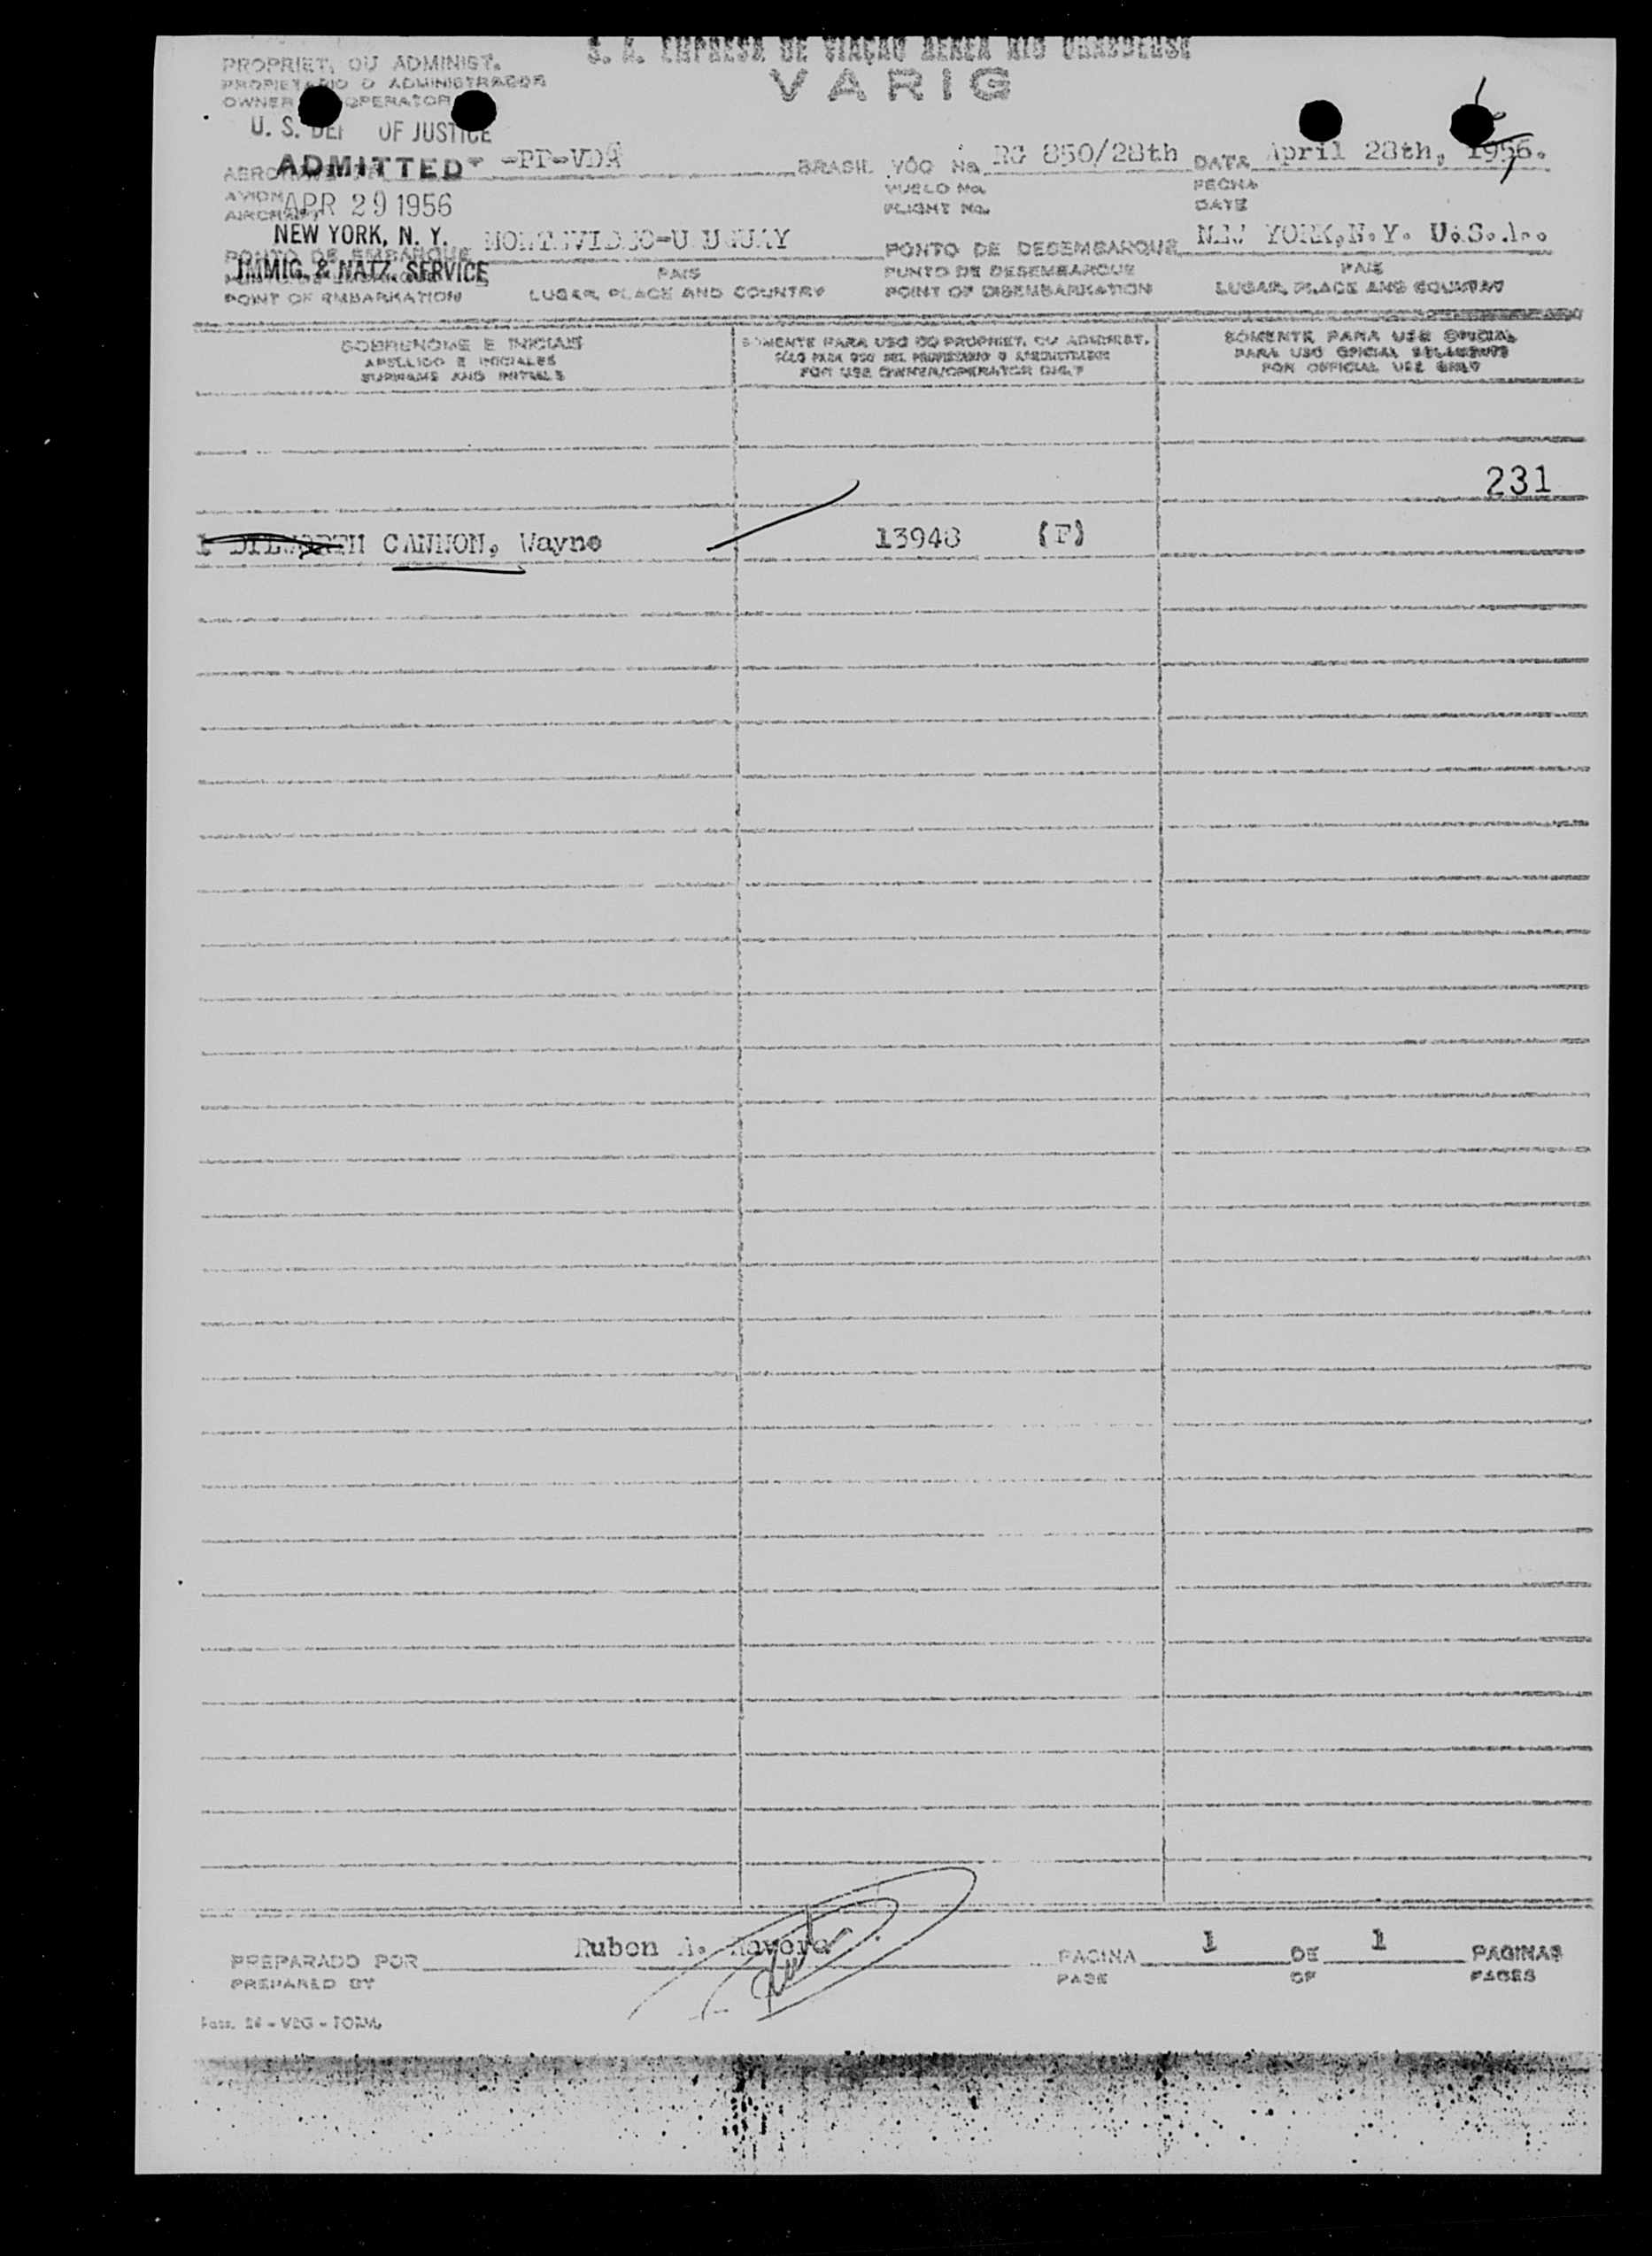 S. A. EMPRESA DE VIAÇÃO AEREA RIO GRANDENSE
VARIG
PROPRIET. OU ADMINIST.
PROPIETARIO O ADMINISTRADOR
OWNER OPERATOR
U. S. DEP OF JUSTICE
ADMITTED
-PP-VDA BRASIL VÔO No. RG 850/28th DATA April 28th, 1956.
AVION VUELO No. FECHA
AIRCRAFT FLIGHT No. DATE
APR 29 1956
NEW YORK, N. Y.
IMMIG. & NATZ. SERVICE
PONTO DE EMBARQUE MONTEVIDEO-URUGUAY PONTO DE DESEMBARQUE NEW YORK, N.Y. U.S.A.
PAIS PUNTO DE DESEMBARQUE PAIS
POINT OF EMBARKATION LUGAR, PLACE AND COUNTRY POINT OF DISEMBARKATION LUGAR, PLACE AND COUNTRY
SOBRENOME E INICIAIS SOMENTE PARA USO DO PROPRIET. OU ADMINIST. SOMENTE PARA USO OFICIAL
APELLIDO E INICIALES SÓLO PARA USO DEL PROPIETARIO O ADMINISTRADOR PARA USO OFICIAL SOLAMENTE
SURNAME AND INITIALS FOR USE OWNER/OPERATOR ONLY FOR OFFICIAL USE ONLY
231
1 DILWORTH CANNON, Wayne 13948 (F)
PREPARADO POR Ruben A. Rovera PAGINA 1 DE 1 PAGINAS
PREPARED BY PAGE OF PAGES